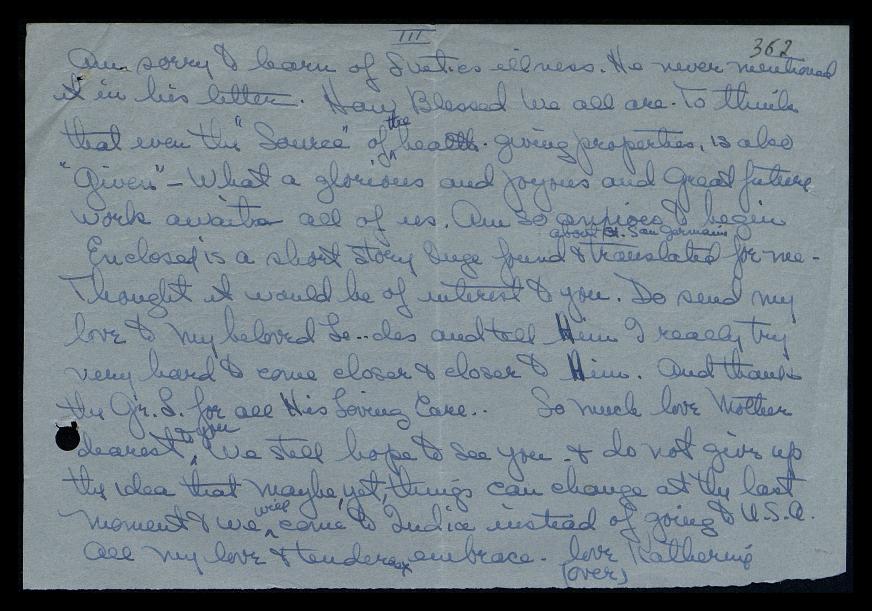 III
362
Am sorry to learn of Svetics illness. He never mentioned
it in his letter. How Blessed We all are. To think
that even the "Source" of the health-giving properties, is also
"Given" – What a glorious and joyous and Great future
work awaits all of us. Am so anxious to begin
about St. San Germain
Enclosed is a short story Inge found & translated for me –
Thought it would be of interest to you. Do send my
love to my beloved Le..des and tell Him I really try
very hard to come closer & closer to Him. And thanks
the Gr. L. for all His Loving Care.. So much love Mother
dearest, to you We still hope to see you & do not give up
the idea that maybe, yet, things can change at the last
moment & we will come to India instead of going to U.S.A.
All my love & tender embrace – love Katherine
(over)